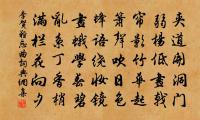 夾道開洞門
弱楊低畫戟
簾影竹華起
簫聲吹日色
蜂語繞妝鏡
畫蛾學春碧
亂系丁香梢
滿欄花向夕
李賀難忘曲詞典網集